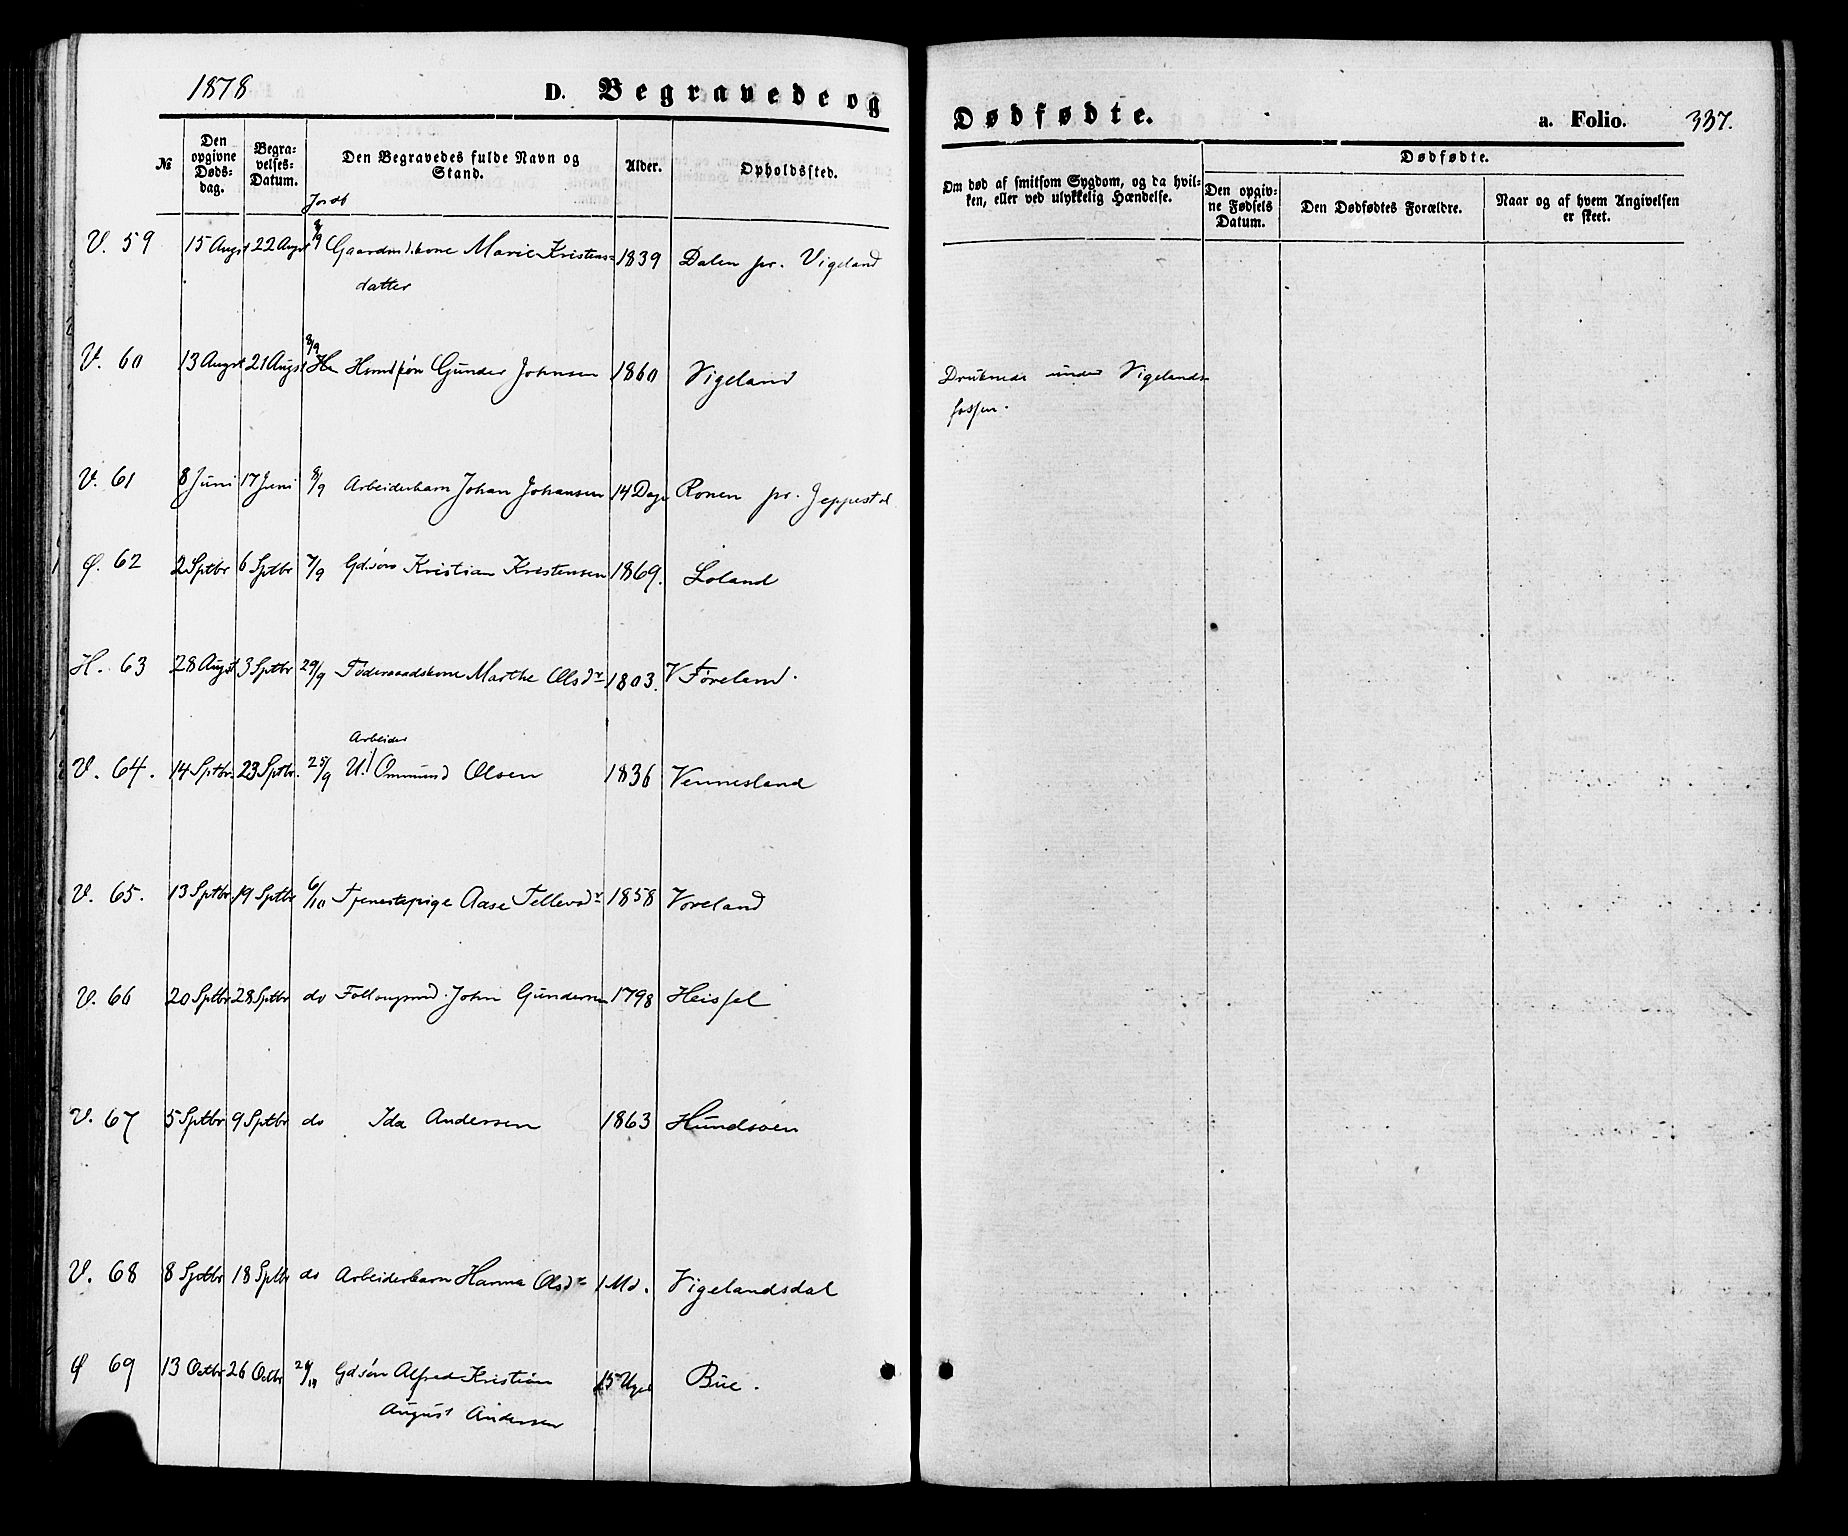 1878 D. Begravede og Dødfødte. a. Folio. 337.
№ Den opgivne Døds-dag. Begra-velses-Datum. Den Begravedes fulde Navn og Stand. Alder. Opholdssted. Om død af smitsom Sygdom, og da hvil-ken, eller ved ulykkelig Hændelse. Dødfødte. Den opgiv-ne Fødsels Datum. Den Dødfødtes Forældre. Naar og af hvem Angivelsen er skeet.
V. 59 15 Augst 22 Augst 8/9 Gaardm.skone Marie Kristens-
datter 1839 Dalen pr. Vigeland
V. 60 13 Augst 21 Augst 8/9 Gunder Johnsen 1860 Vigeland Druknede under Vigelands-
fossen.
V. 61 8 Juni 17 Juni 8/9 Arbeiderbarn Johan Johansen 14 Dage Ronen pr. Jeppestøl
Ø. 62 2 Sptbr 6 Sptbr 7/9 Gdsøn Kristian Kristensen 1869. Loland
H. 63 28 Augst 3 Sptbr 29/9 Føderaadskone Marthe Olsdr 1803. V Føreland.
Arbeider
V. 64. 14 Sptbr. 23 Sptbr. 25/9 U. Ommund Olsen 1836 Vennesland
V. 65. 13 Sptbr 19 Sptbr 6/10 Tjenestepige Aase Tellevsdr 1858 Voreland
V. 66 20 Sptbr 28 Sptbr do John Gundersen 1798 Heissel
V. 67 5 Sptbr 9 Sptbr do Ida Andersen 1863 Hundsøen
V. 68 8 Sptbr 18 Sptbr do Arbeiderbarn Hanna Olsdr 1 Md. Vigelandsdal
Ø 69 13 Octbr 26 Octbr Gdsøn Alfred Kristian
August Andersen 15 Uger Bue.